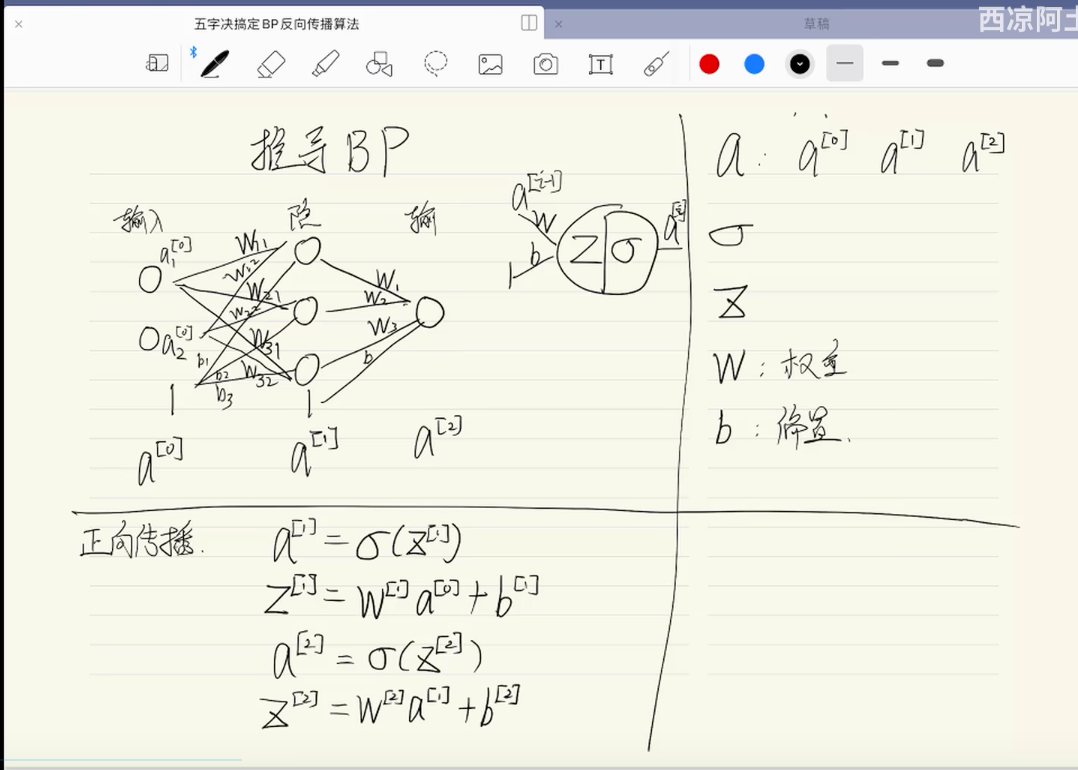 五字决搞定BP反向传播算法
草稿
西凉阿土
T
推导BP
输入 隐 输
a₁^[0]
W₁₁
W₁₂
W₂₁
W₂₂
W₃₁
W₃₂
a₂^[0]
b₁
b₂
b₃
1
W₁
W₂
W₃
b
1
a^[0] a^[1] a^[2]
a^[i-1]
W
b
1
Z σ
a^[i]
a: a^[0] a^[1] a^[2]
σ
Z
W:权重
b:偏置.
正向传播.
a^[1]=σ(Z^[1])
Z^[1]=W^[1]a^[0]+b^[1]
a^[2]=σ(Z^[2])
Z^[2]=W^[2]a^[1]+b^[2]